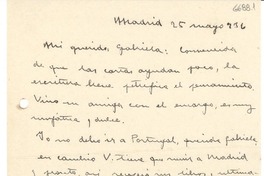 6688.1
Madrid 25 mayo 936
Mi querida Gabriela: Convencida
de que las cartas ayudan poco, la
escritura hiere petrifica el pensamiento.
Vino su amiga con el encargo, es muy
simpática y dulce.
Yo no debo ir a Portugal, querida Gabriela
en cambio V. tiene que venir a Madrid
y pronto, así revisaría un libro, ultima